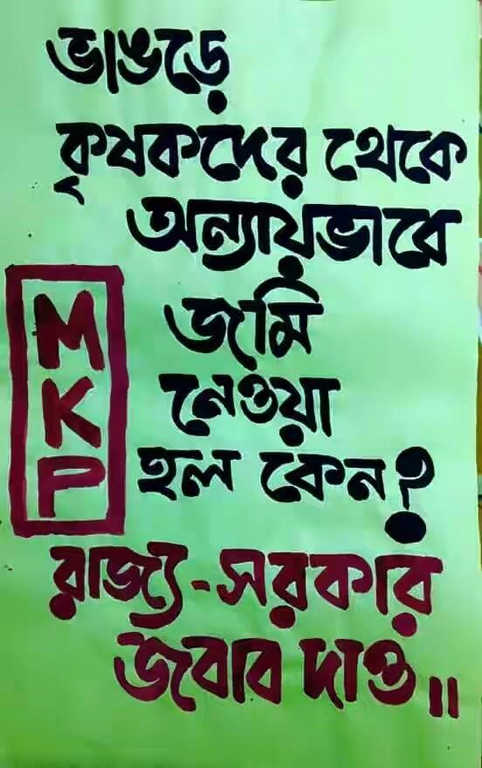 ভাঙড়ে
কৃষকদের থেকে
অন্যায়ভাবে
জমি
নেওয়া
হল কেন?
MKP
রাজ্য-সরকার
জবাব দাও॥